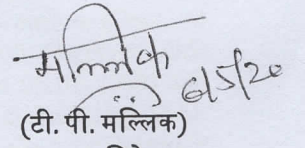 मल्लिक
6/5/20
(टी. पी. मल्लिक)